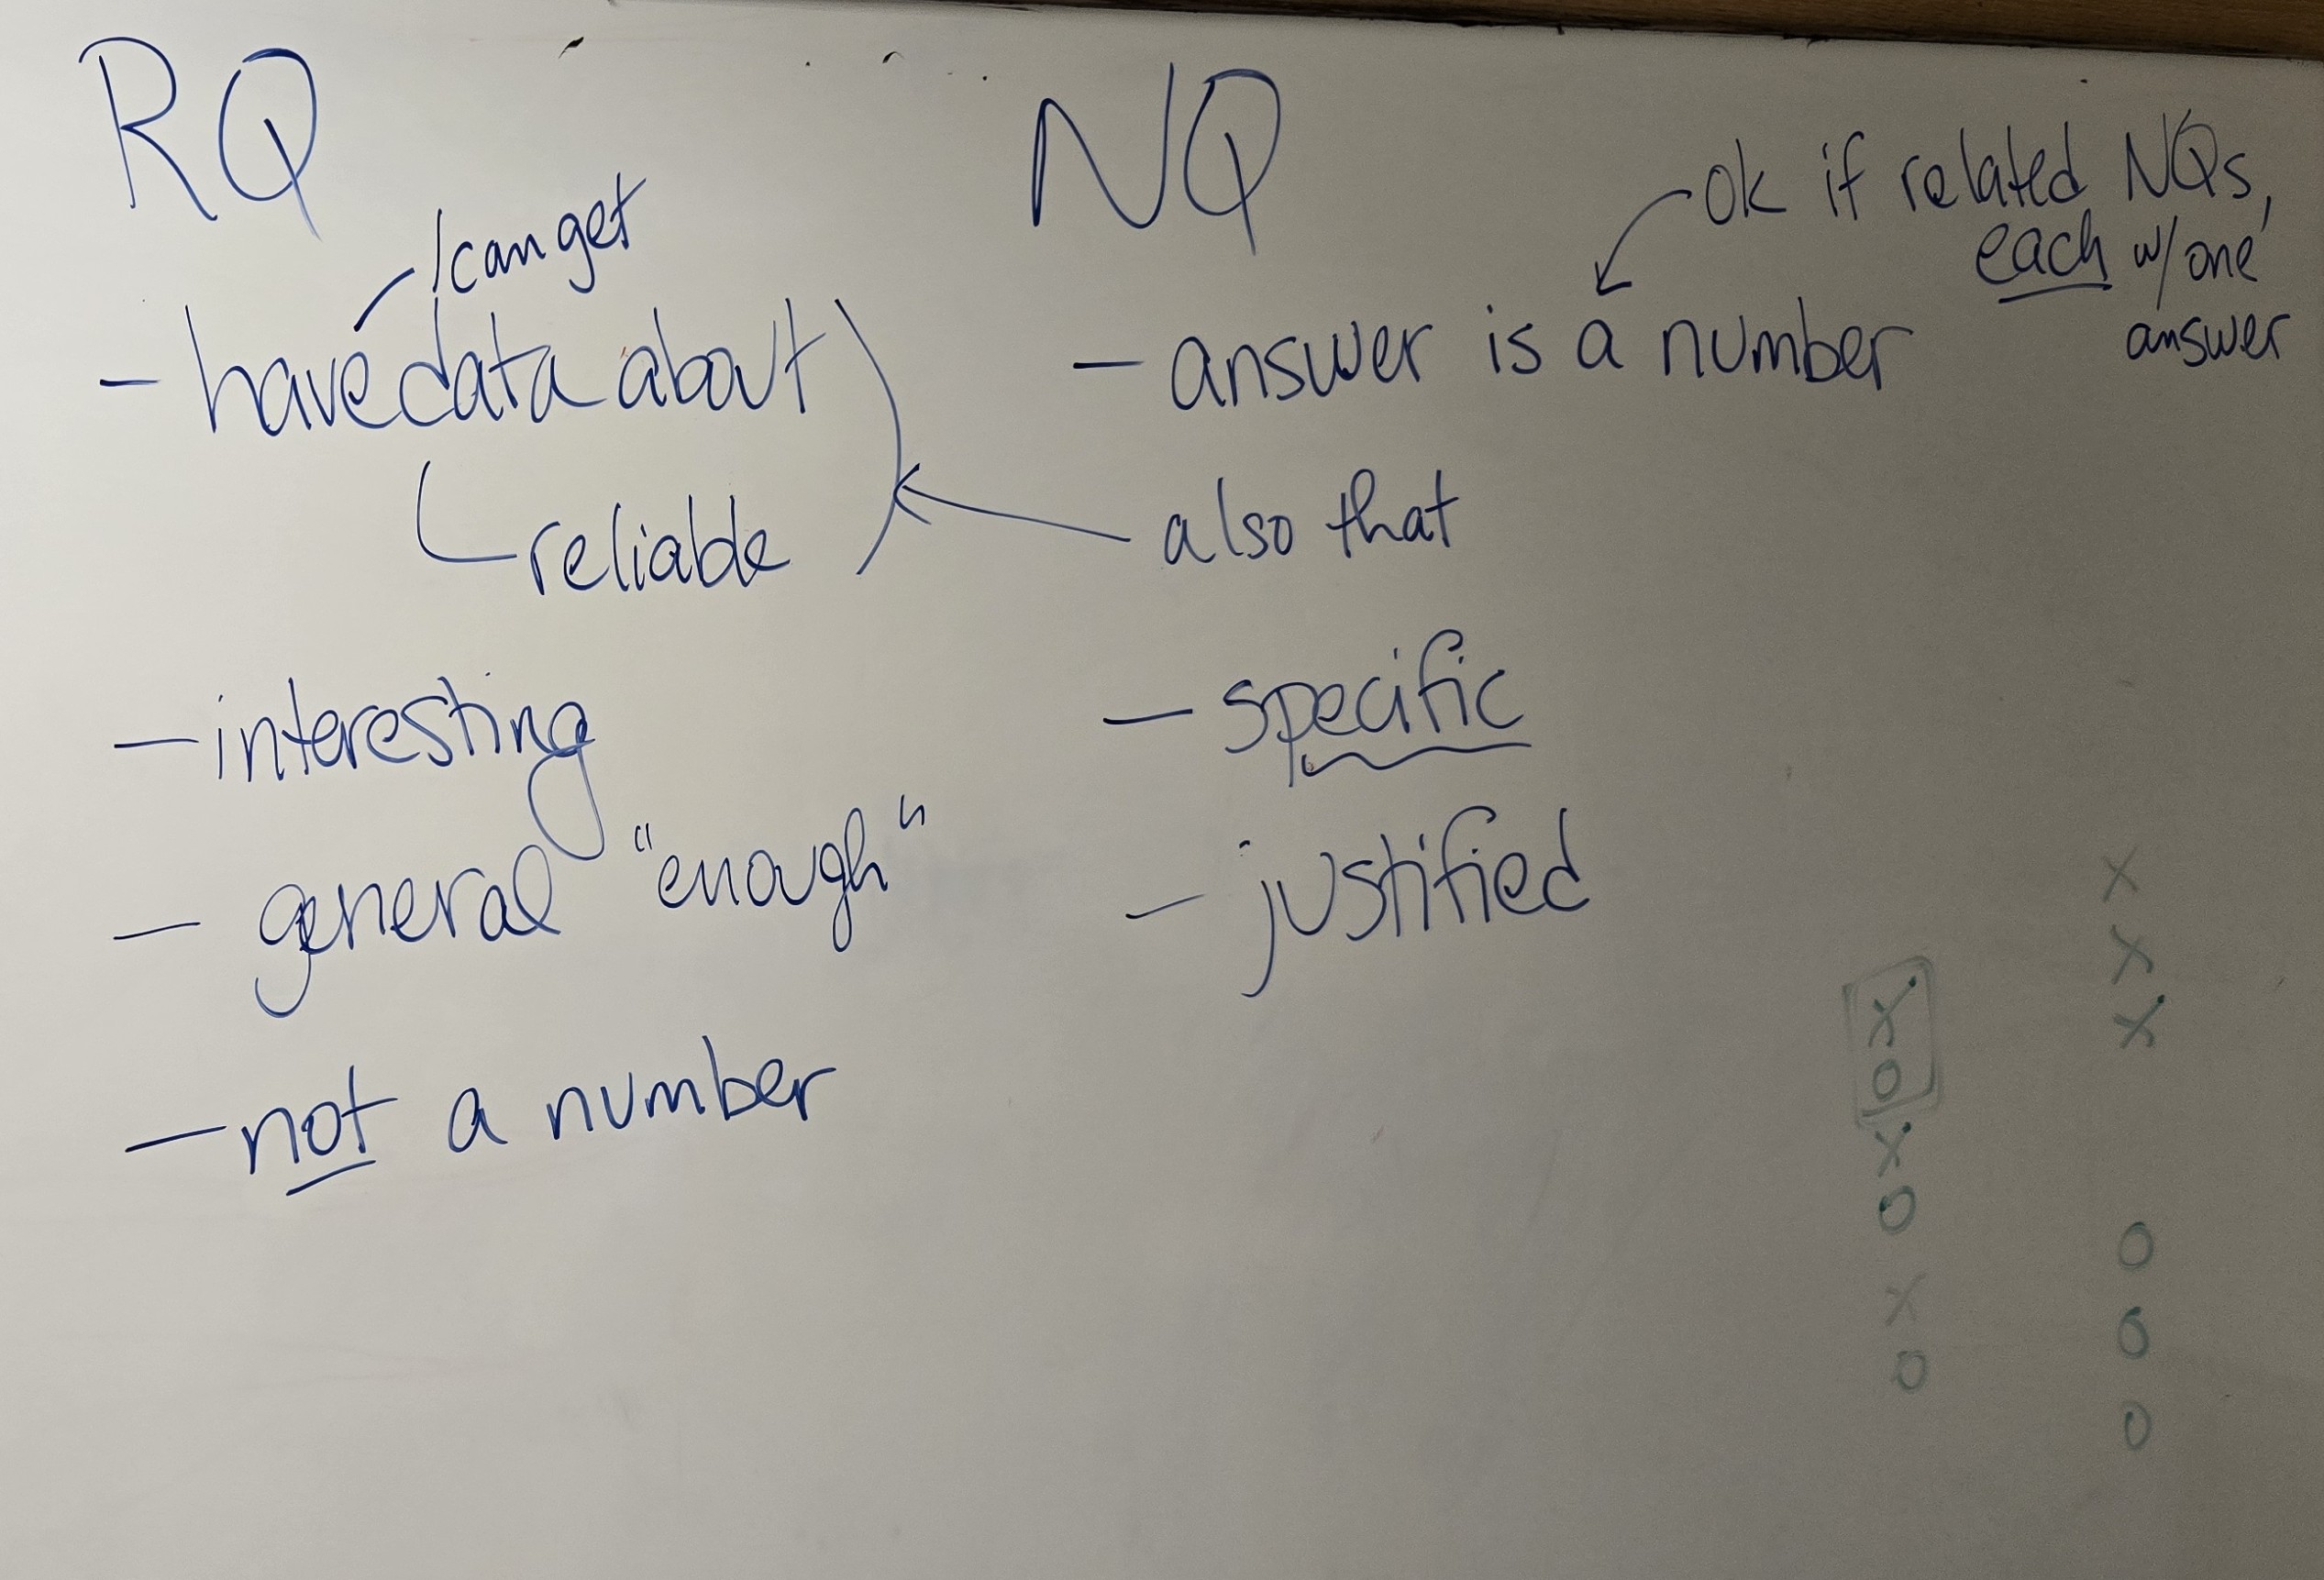 RQ
/can get
- have data about
reliable
- interesting
- general "enough"
- not a number
NQ
ok if related NQs,
each w/ one
answer
- answer is a number
also that
- specific
- justified
x
x
x
x
o
x
o
x
o
o
o
o